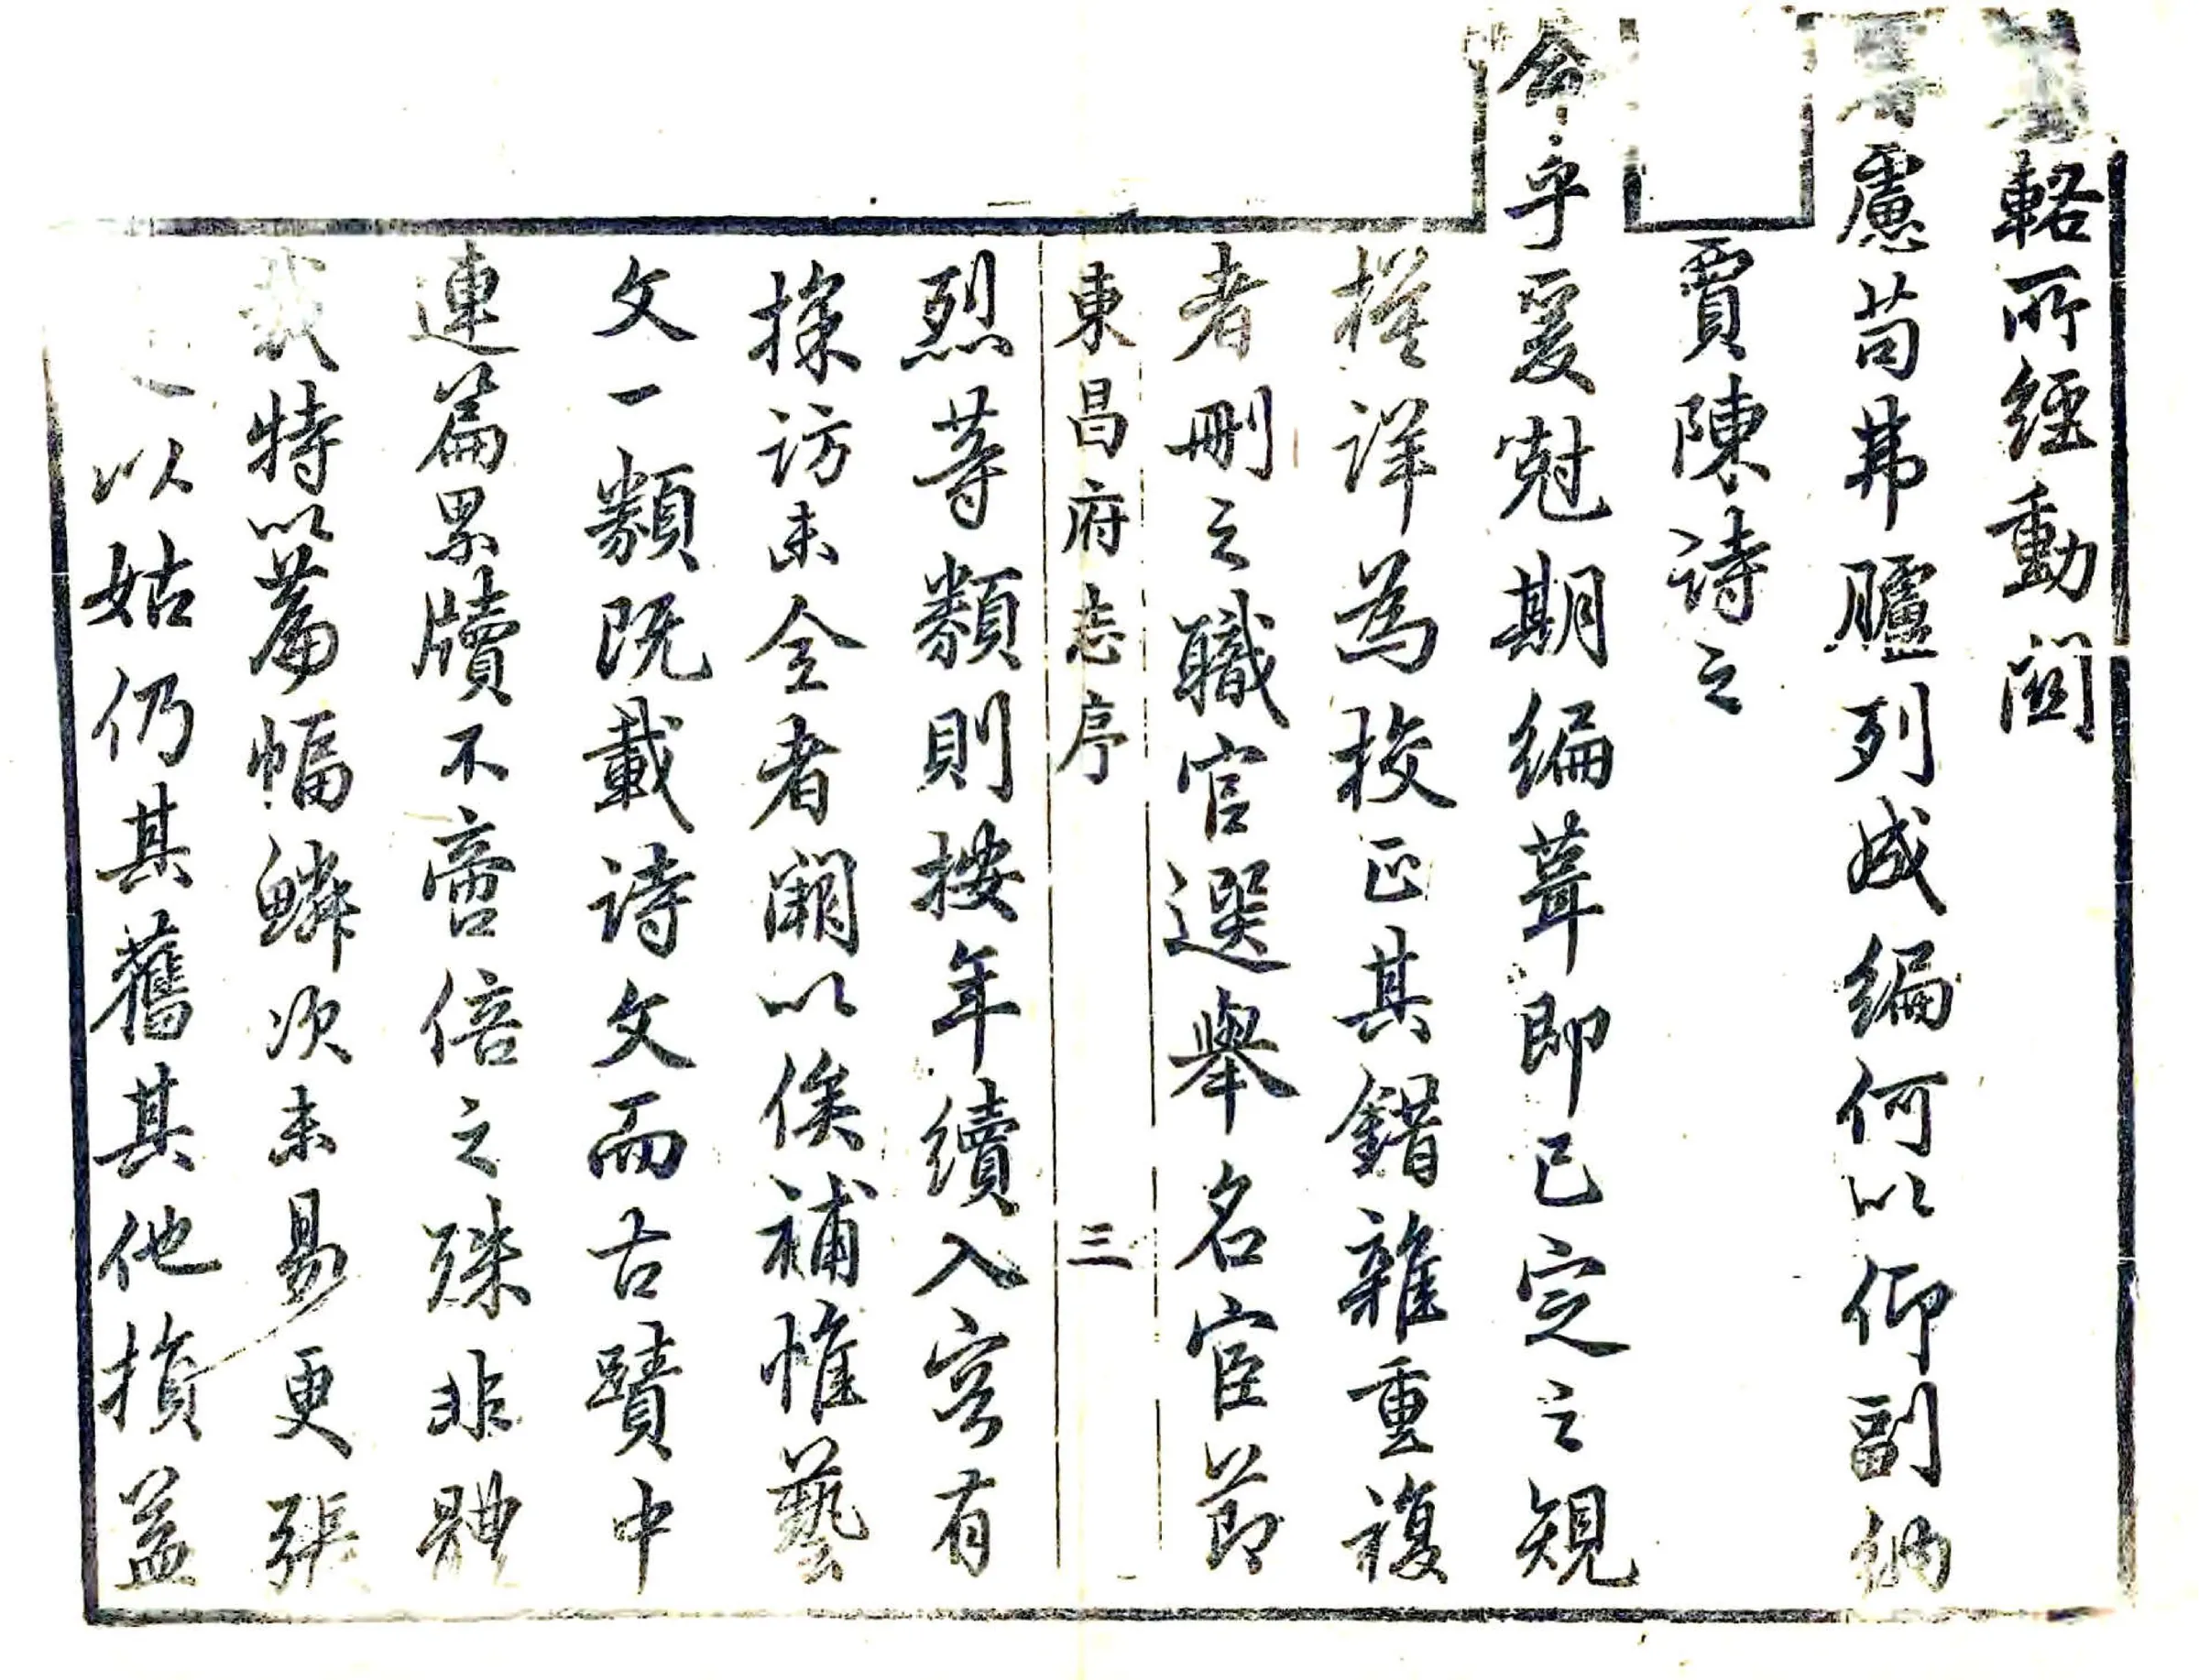 輅所經動關
慮苟弗臚列成編何以仰副納
賈陳詩之
命乎爰尅期編葺即已定之規
模詳為校正其錯雜重複
者刪之職官選舉名宦節
東昌府志序
三
烈等類則按年續入容有
採訪未全者闕以俟補惟藝
文一類既載詩文而古蹟中
連篇累牘不啻倍之殊非體
裁特以篇幅鱗次未易更張
以姑仍其舊其他損益